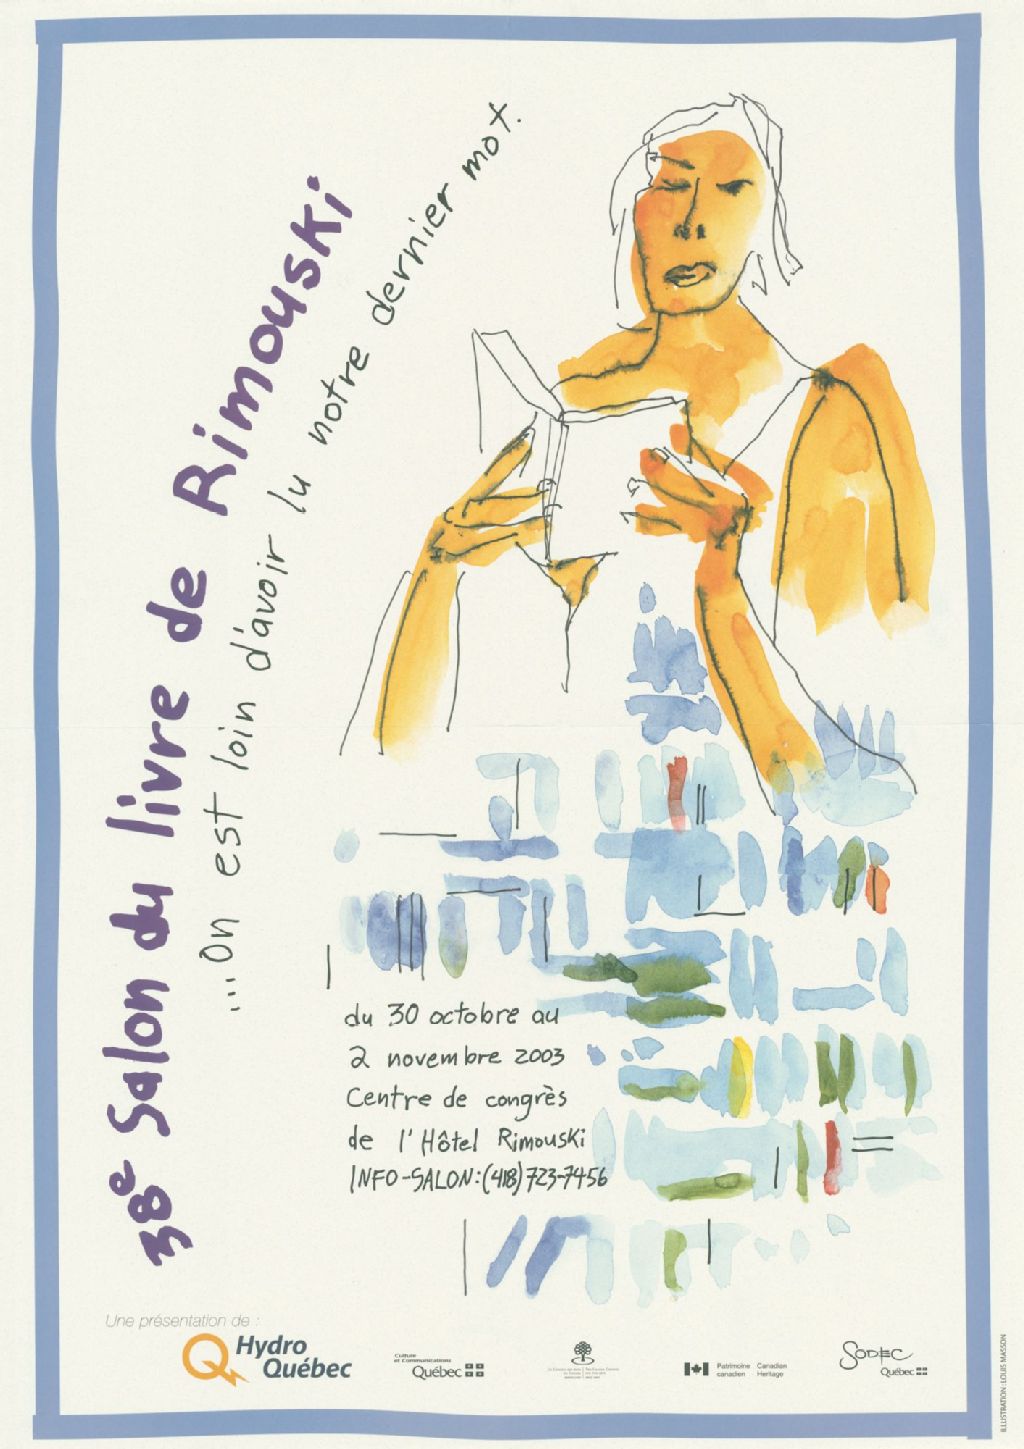 38e Salon du livre de Rimouski
...On est loin d'avoir lu notre dernier mot.
du 30 octobre au
2 novembre 2003
Centre de congrès
de l'Hôtel Rimouski
INFO-SALON: (418) 723-7456
Une présentation de :
Hydro
Québec
Culture
et Communications
Québec
Patrimoine canadien
Canadian Heritage
SODEC
Québec
ILLUSTRATION : LOUIS MASSON